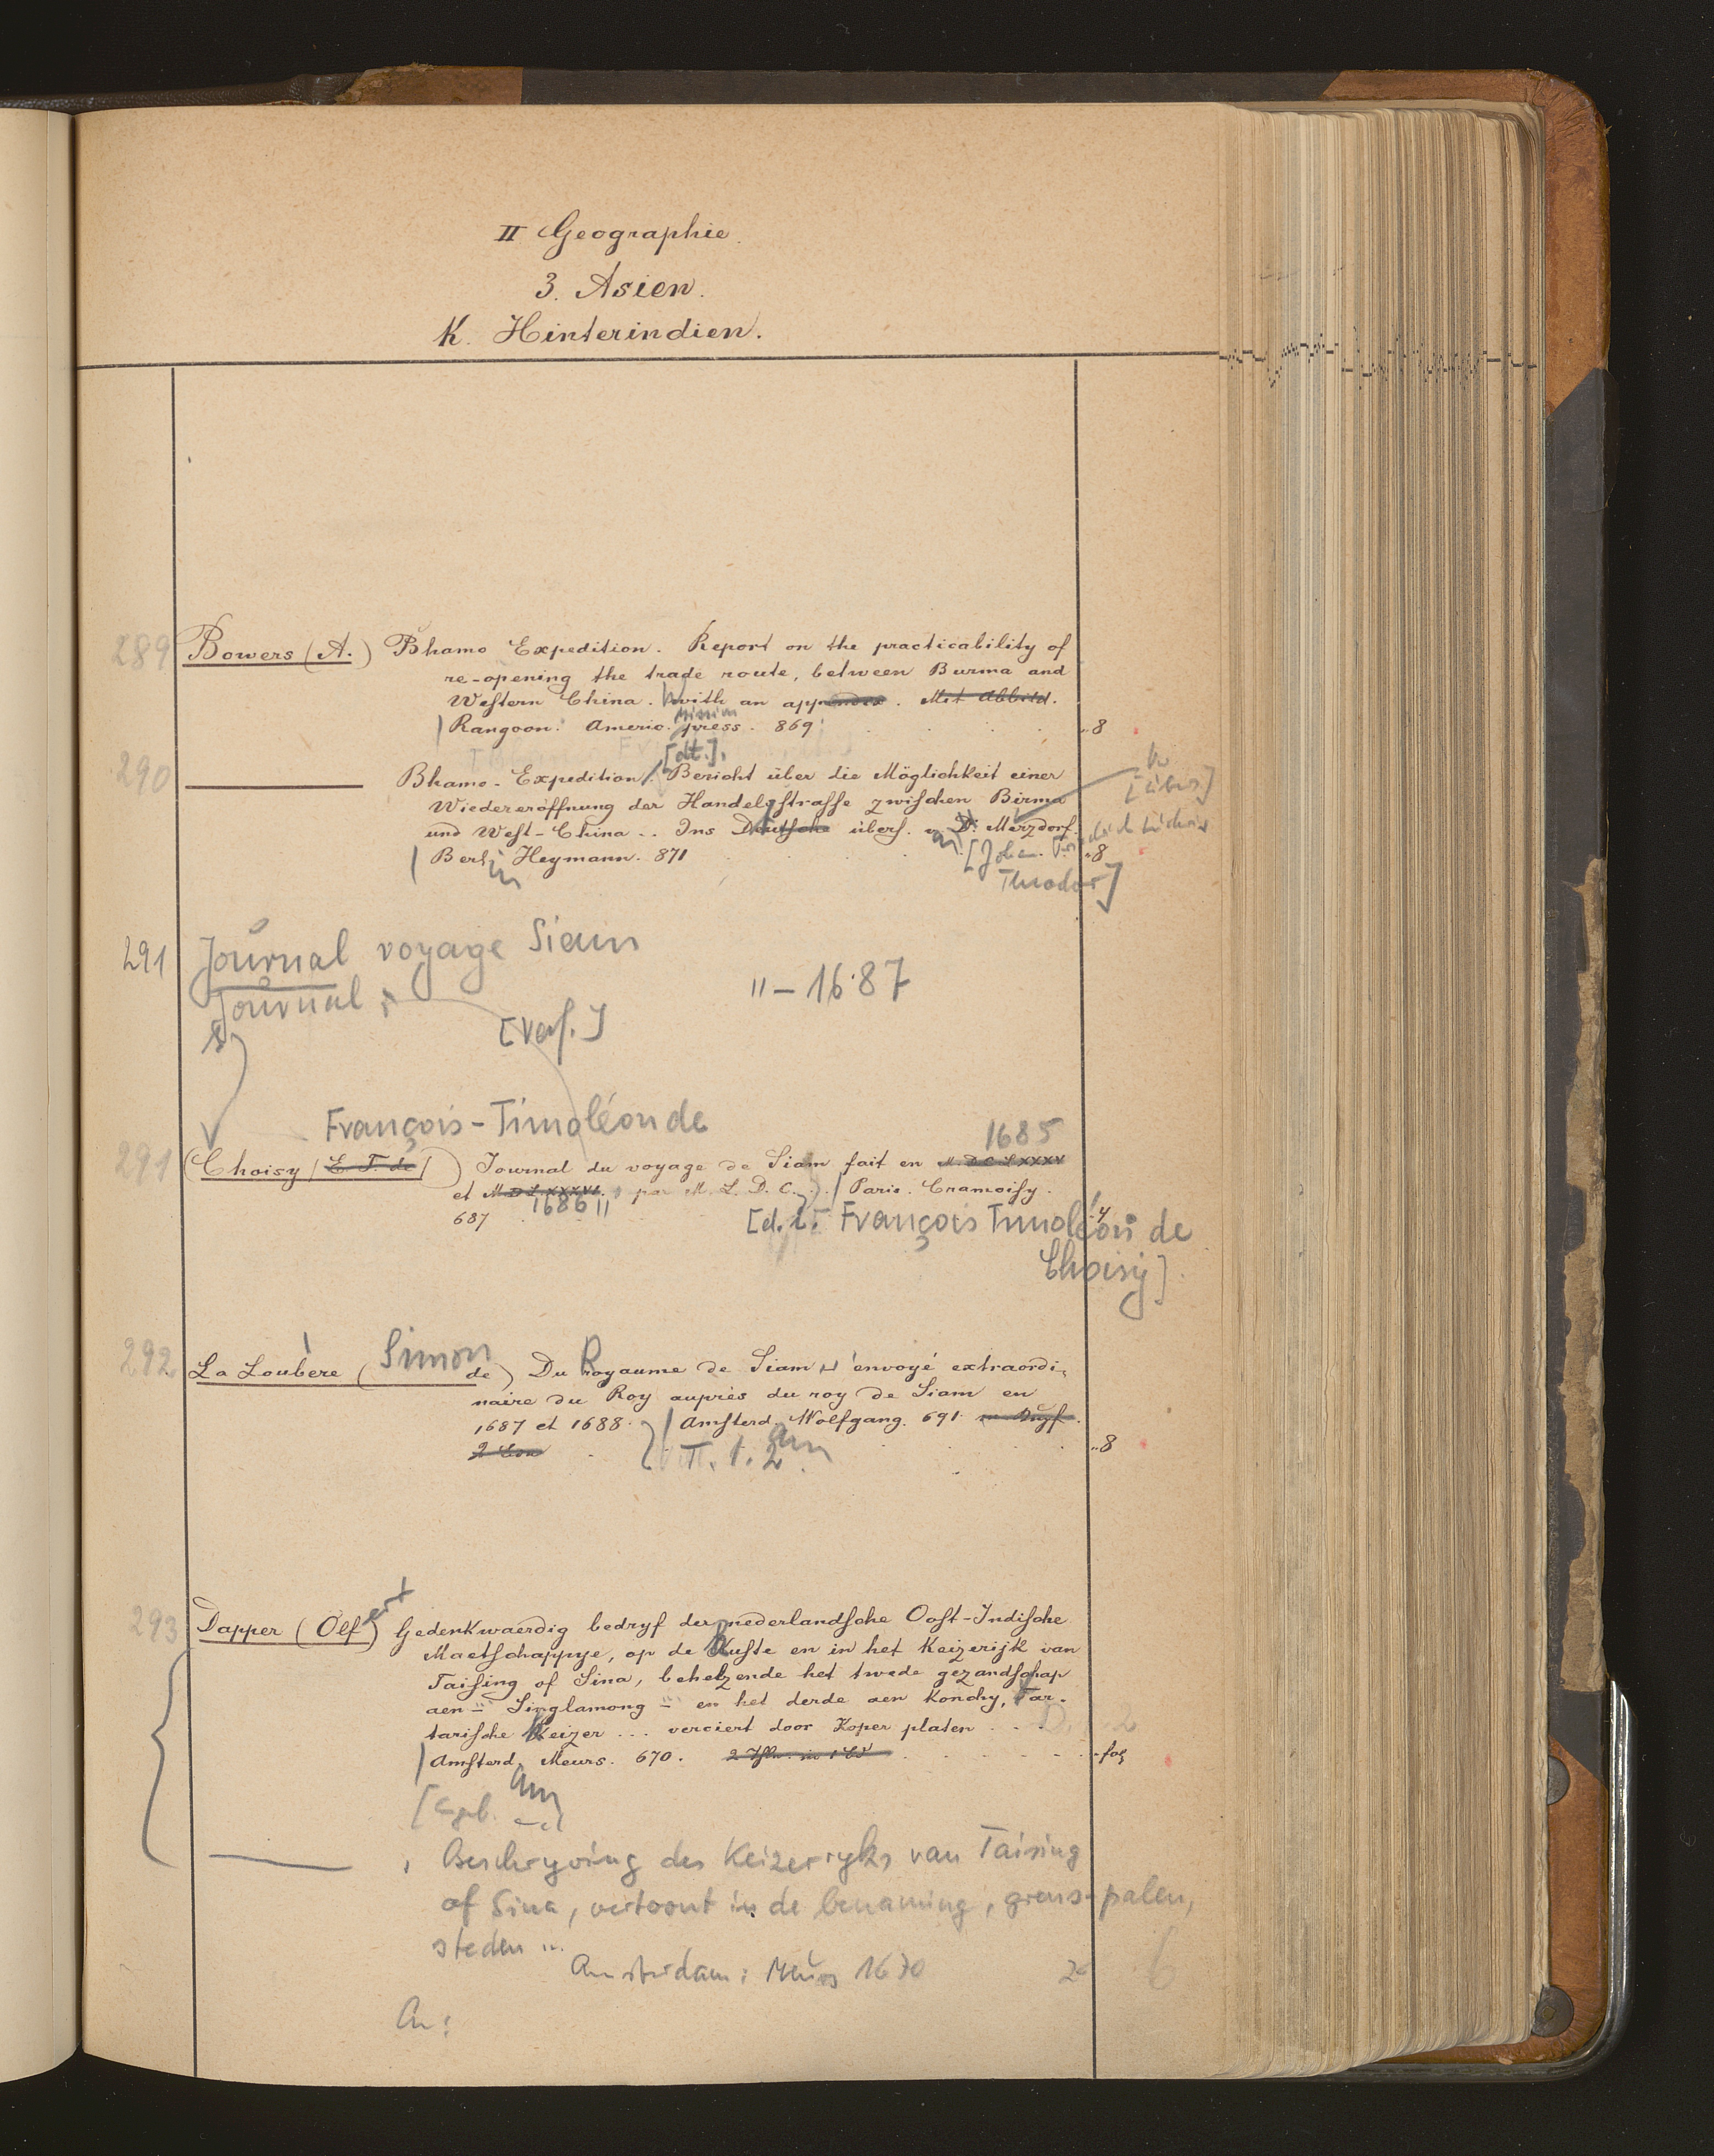 II Geographie.
3. Asien.
K. Hinterindien.
289 Bowers (A.) Bhamo Expedition. Report on the practicability of
re-opening the trade route, between Burma and
Western China. With an appendix. Mit Abbild.
Mission
Rangoon: Americ. press. 869 8
[dt.],
290 Bhamo-Expedition. Bericht über die Möglichkeit einer
Wiedereröffnung der Handelsstrasse zwischen Birma [übers.]
und West-China .. Ins Deutsche übers. v. Dr. Merzdorf.
Berlin Heymann. 871 8
Theodor]
291 Journal voyage Siam
Journal II – 1687
[Verf.]
François-Timoléon de
1685
291 Choisy (E. T. de) Journal du voyage de Siam fait en M.D.C.LXXXV
et M.D.L.XXXVI. par M. L. D. C. Paris. Cramoisy.
687 1686 4
[d. i. François Timoléon de
Choisy]
292 La Loubère (Simon de) Du Royaume de Siam envoyé extraordi-
naire du Roy auprès du roy de Siam en
1687 et 1688. Amsterd. Wolfgang. 691.
T. 1. 2 8
293 Dapper (Olfert) Gedenkwaerdig bedryf der nederlandsche Oost-Indische
Maetschappye, op de Kuste en in het Keizerijk van
Taising of Sina, behelzende het twede gezandschap
aen Singlamong en het derde aen Konchy, Tar-
tarische Keizer ... verciert door Koper platen
Amsterd. Meurs. 670. fol
Beschryving des Keizerryks van Taising
of Sina, vertoont in de benaming, grens-palen,
steden ...
Amsterdam: Meurs 1670 2°
An: